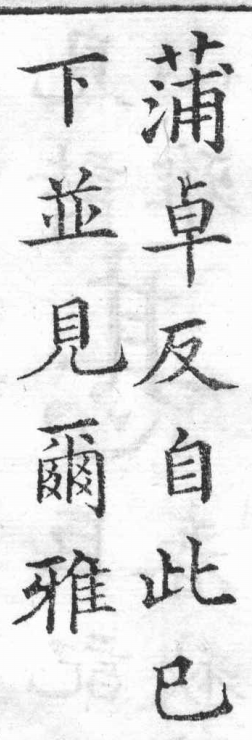 蒲卓反自此已
下並見爾雅